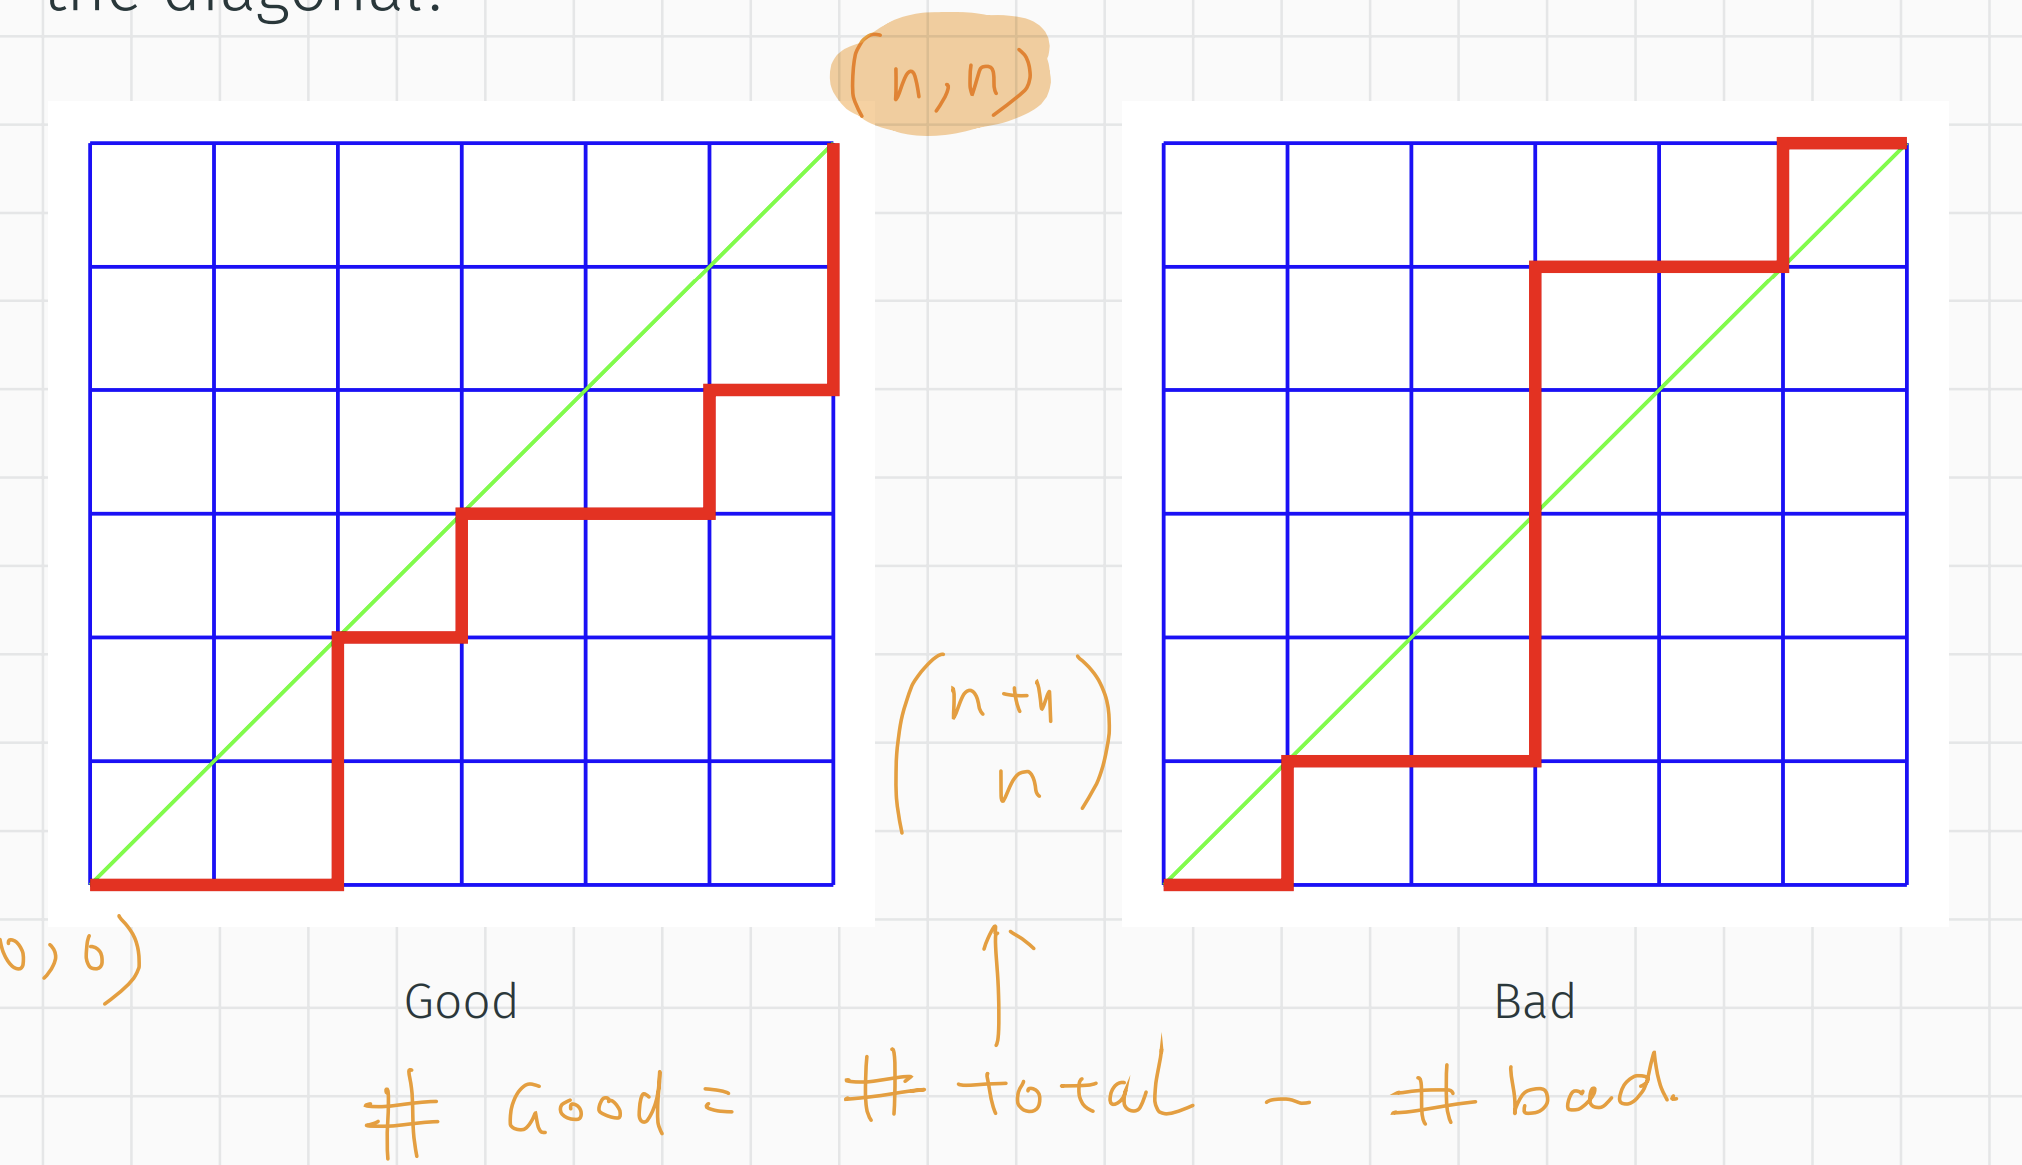 the diagonal.
(n,n)
(n+n
n)
0,0)
Good
Bad
# Good = # total - # bad.